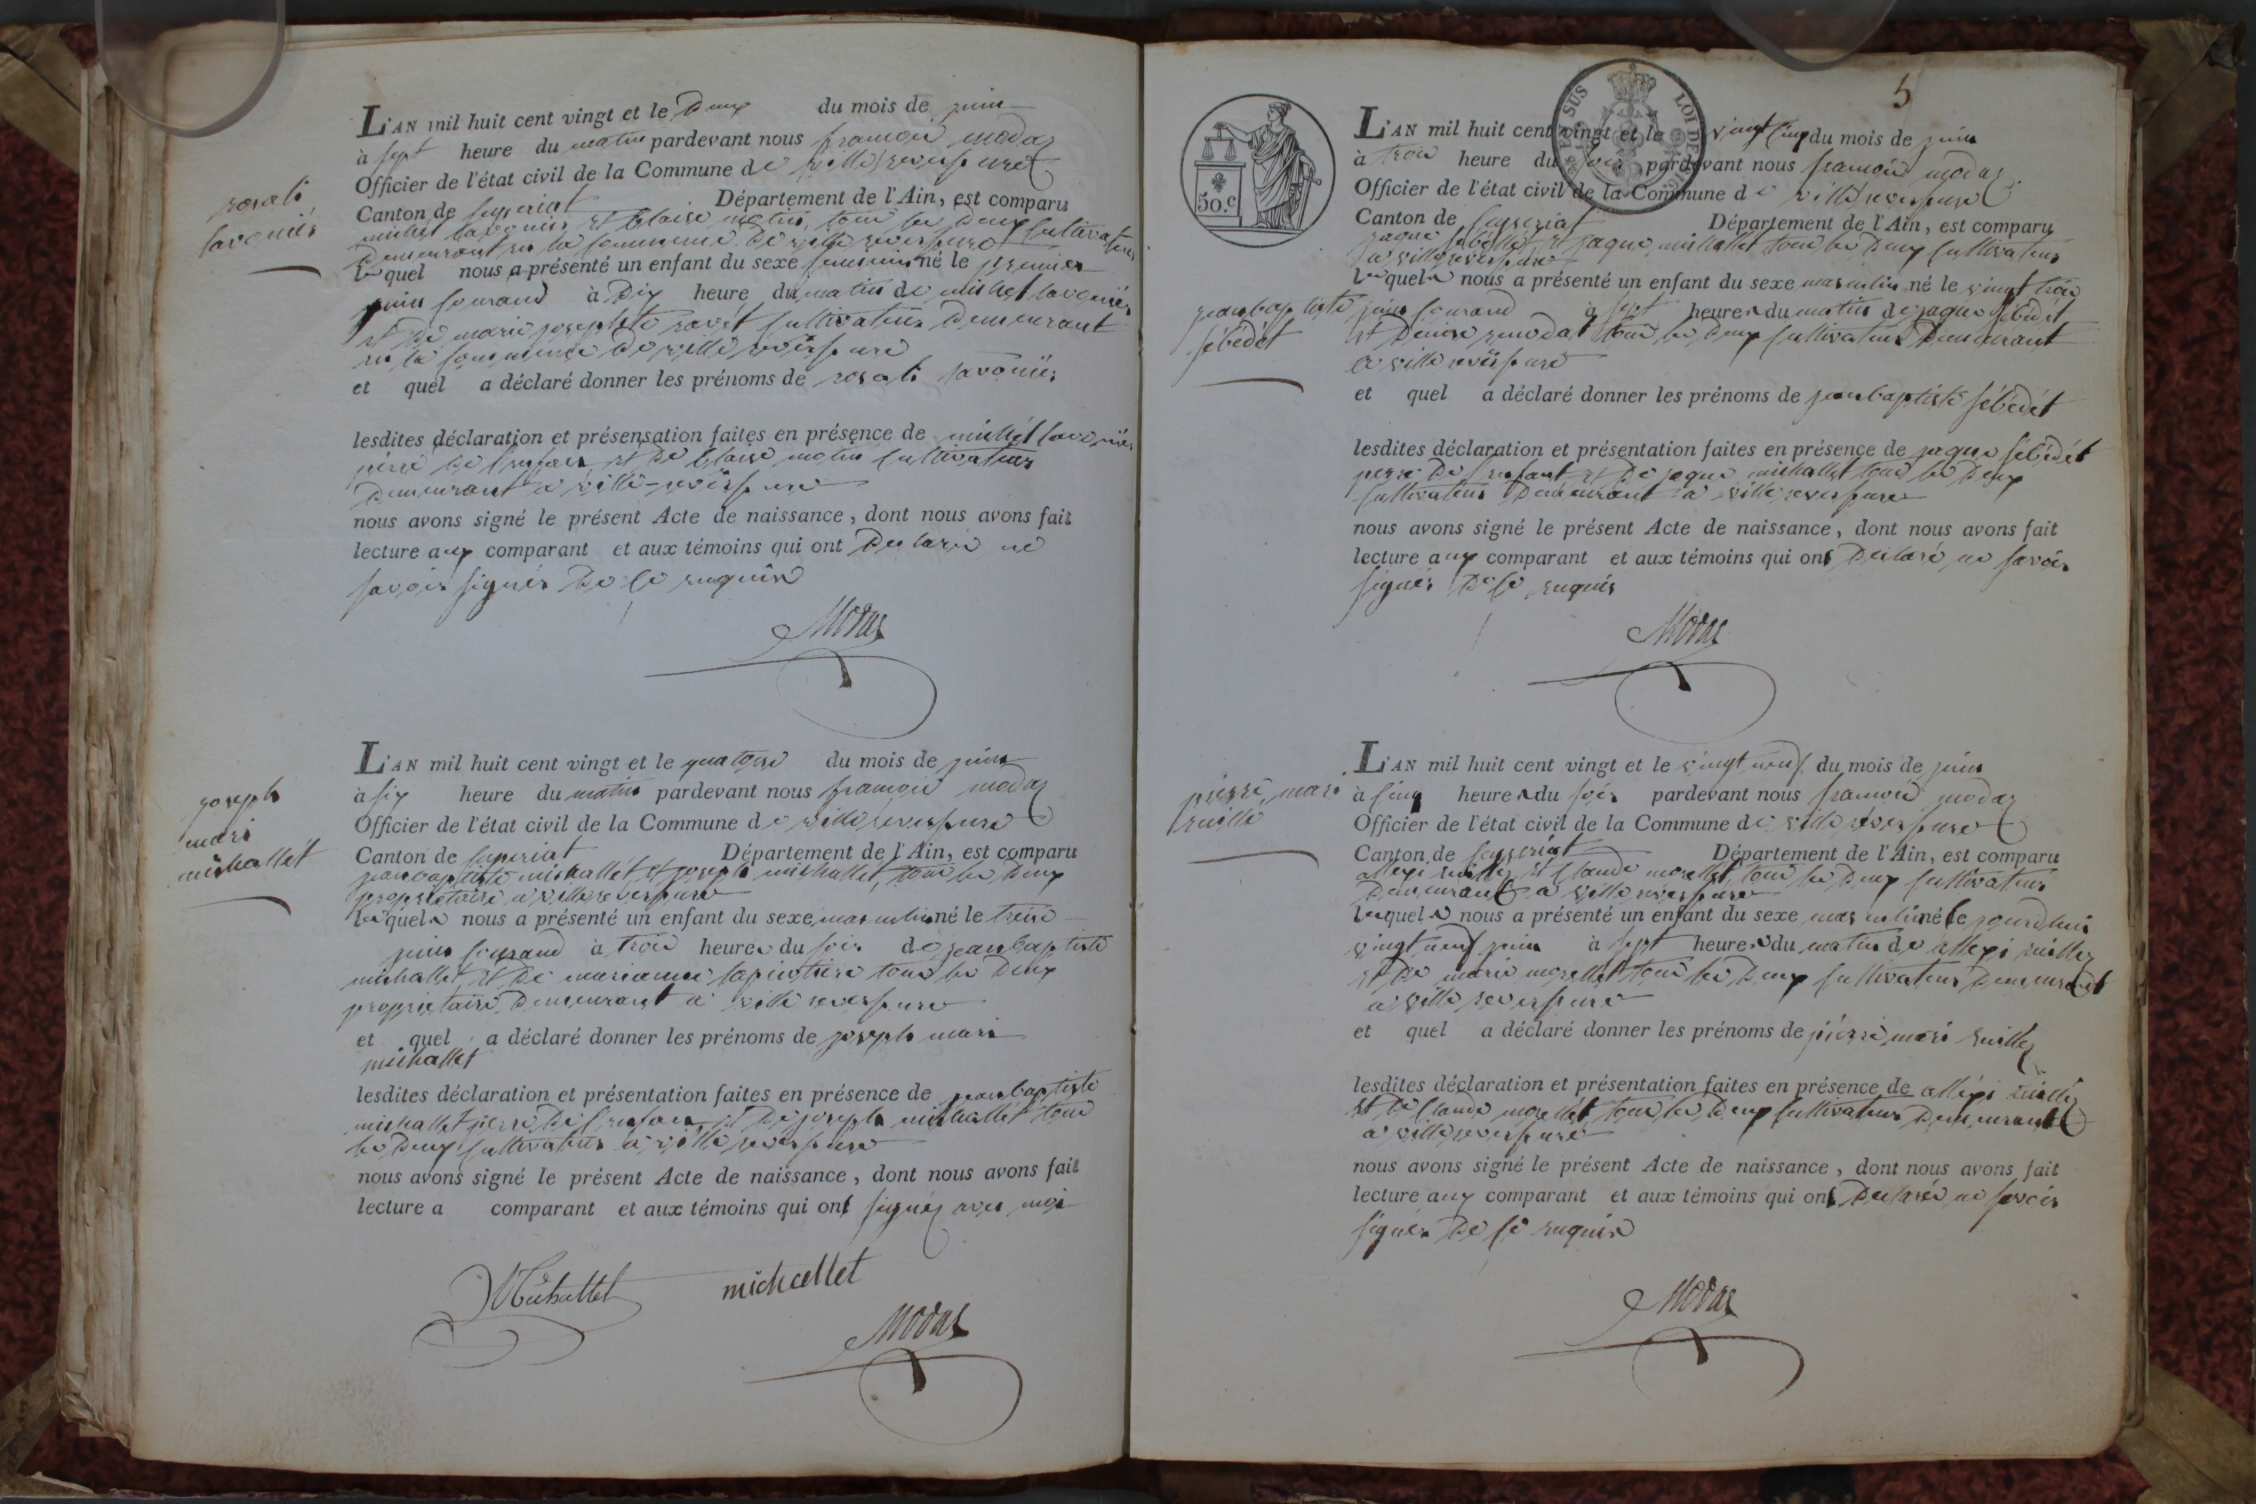 L'AN mil huit cent vingt et le Deux du mois de juin
à sept heure du matin pardevant nous francois modaz
Officier de l'état civil de la Commune de ville reversure
Canton de Ceyzeriat Département de l'Ain, est comparu
michel savonier et blaise matin, tous les Deux Cultivateurs
Demeurant en la Commune De ville reversure
lequel nous a présenté un enfant du sexe feminin né le premier
rosali
savoniér
juin Courand à Dix heure du matin de michel savoniér
et De marie josephete ravét Cultivateur Demeurant
en la Commune De ville reversure
et quel a déclaré donner les prénoms de rosali savoniér
lesdites déclaration et présensation faites en présence de michél savoniér
pére De l'enfan et De blaise matin Cultivateurs
Demeurant a ville-reversure
nous avons signé le présent Acte de naissance, dont nous avons fait
lecture aux comparant et aux témoins qui ont Declaré ne
savoir signér De Ce enquis
Modaz
joseph
mari
michallét
L'AN mil huit cent vingt et le quatorse du mois de juin
à six heure du matin pardevant nous francois modaz
Officier de l'état civil de la Commune de ville reversure
Canton de Ceyzeriat Département de l'Ain, est comparu
janbaptiste michallét et joseph michallet, tous les Deux
propriétaire a ville reversure
lequels nous a présenté un enfant du sexe masculin né le treise
juin Courand à trois heures du soir de jeanbaptiste
michallet, et De marianne tous les Deux
propriétaire Demeurant a ville reversure
et quel a déclaré donner les prénoms de joseph mari
michallet
lesdites déclaration et présentation faites en présence de janbaptiste
michallet pere De l'enfan et De joseph michallét tous
les Deux Cultivateur a ville reversure
nous avons signé le présent Acte de naissance, dont nous avons fait
lecture a comparant et aux témoins qui ont signéz avec moi
Michallet michallet
Modaz
5
50.c
SUS LOI DE
L'AN mil huit cent vingt et le vingt Cinq du mois de juin
à trois heure du soir pardevant nous francois modaz
Officier de l'état civil de la Commune de ville reversure
Canton de Ceyzeriat Département de l'Ain, est comparu
jaque sébédét et jaque michallet tous les Deux Cultivateurs
a ville reversure
lequels nous a présenté un enfant du sexe masculin né le vingt trois
jeanbaptiste
sébédét
juin Courand à sept heures du matin de jaque sébédét
et Denise tous les Deux Cultivateurs Demeurant
a ville reversure
et quel a déclaré donner les prénoms de janbaptiste sébédét
lesdites déclaration et présentation faites en présence de jaque sébédét
pere De l'enfant et De jaque michallet tous les Deux
Cultivateurs Demeurant a ville reversure
nous avons signé le présent Acte de naissance, dont nous avons fait
lecture aux comparant et aux témoins qui ont Declaré ne savoir
signér De Ce enquis
Modaz
pierre mari
L'AN mil huit cent vingt et le vingt neuf du mois de juin
à Cinq heures du soir pardevant nous francois modaz
Officier de l'état civil de la Commune de ville reversure
Canton de Ceyzeriat Département de l'Ain, est comparu
allexi et Claude morellet, tous les Deux Cultivateurs
Demeurant a ville reversure
lequels nous a présenté un enfant du sexe masculin né le jourdhui
vingt neuf juin à sept heures du matin de allexi
et De marie morellet tous les Deux Cultivateurs Demeurant
a ville reversure
et quel a déclaré donner les prénoms de pierre mari
lesdites déclaration et présentation faites en présence de alléxi
et De Claude morellet, tous les Deux Cultivateurs Demeurant
a ville reversure
nous avons signé le présent Acte de naissance, dont nous avons fait
lecture aux comparant et aux témoins qui ont Declaréé ne savoir
signér De Ce enquis
Modaz